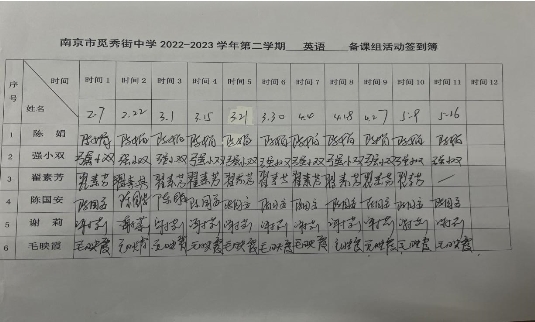 南京市觅秀街中学 2022-2023 学年第二学期 英语 备课组活动签到簿
序号 时间 姓名 时间 1 时间 2 时间 3 时间 4 时间 5 时间 6 时间 7 时间 8 时间 9 时间 10 时间 11 时间 12
2.7 2.22 3.1 3.15 3.21 3.30 4.4 4.18 4.27 5.9 5.16
1 陈娟 陈娟 陈娟 陈娟 陈娟 陈娟 陈娟 陈娟 陈娟 陈娟 陈娟 陈娟
2 强小双 强小双 强小双 强小双 强小双 强小双 强小双 强小双 强小双 强小双 强小双 强小双
3 翟素芳 翟素芳 翟素芳 翟素芳 翟素芳 翟素芳 翟素芳 翟素芳 翟素芳 翟素芳 翟素芳 —
4 陈国安 陈国安 陈国安 陈国安 陈国安 陈国安 陈国安 陈国安 陈国安 陈国安 陈国安 陈国安
5 谢莉 谢莉 谢莉 谢莉 谢莉 谢莉 谢莉 谢莉 谢莉 谢莉 谢莉 谢莉
6 毛映霞 毛映霞 毛映霞 毛映霞 毛映霞 毛映霞 毛映霞 毛映霞 毛映霞 毛映霞 毛映霞 毛映霞